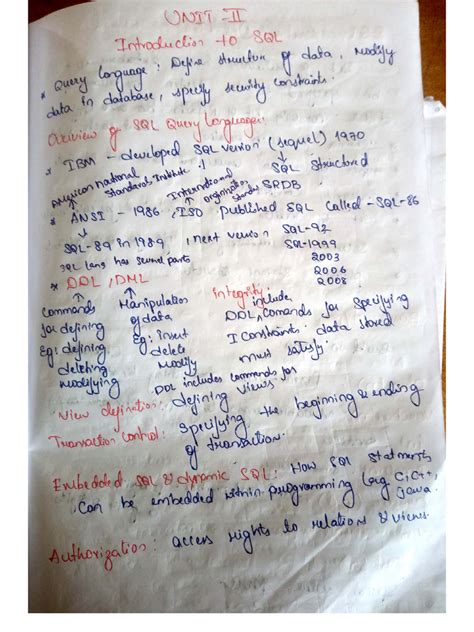 UNIT - II
Introduction to SQL
* Query language : Define structure of data, modify
data in database, specify security constraints.
Overview of SQL Query Languages
* IBM - developed SQL version (sequel) 1970
SQL Structured
American national
Standards Institute
International
Organisation
SRDB
* ANSI - 1986, ISO Published SQL called - SQL-86
SQL-89 in 1989, next version SQL-92
SQL-1999
SQL lang has several parts
2003
2006
2008
* DDL, DML
Commands
for defining
Eg: defining
deleting
modifying
Manipulation
of data
Eg: insert
delete
modify
Integrity:
include
DDL, Comands for specifying
I Constraints data stored
must satisfy.
View definition: DDL includes commands for
defining views.
Transaction Control: Specifying the beginning & ending
of transaction.
Embedded SQL & dynamic SQL: How SQL statments
Can be embedded within programming (eg. C, C++,
Java.
Authorization: access rights to relations & views.